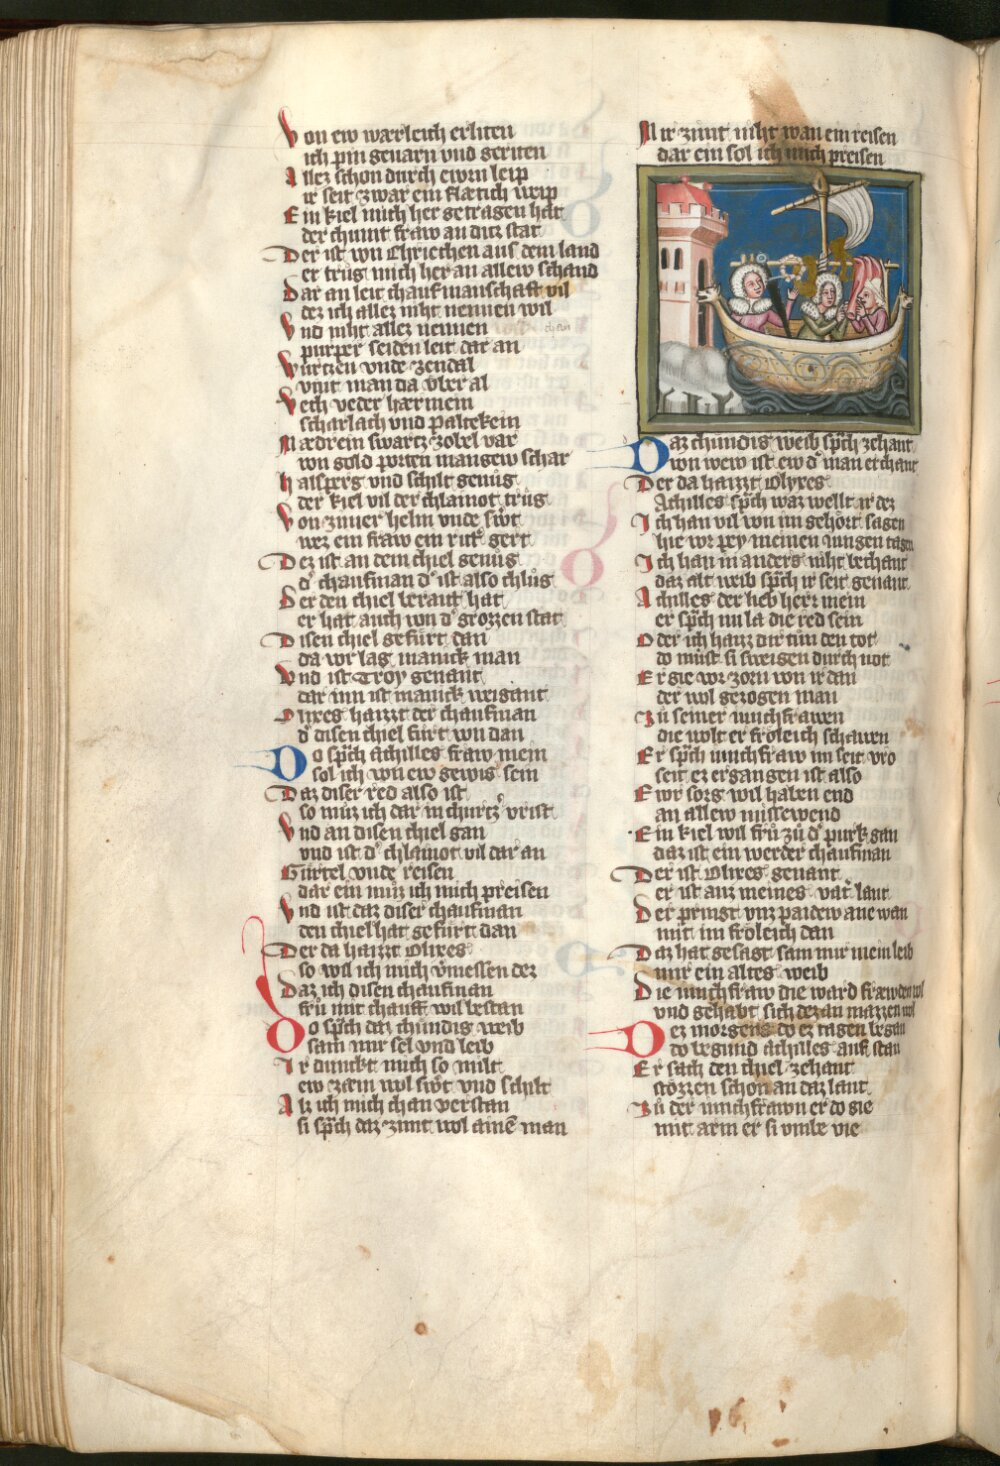 Von ew warleich erliten
ich pin genarn vnd geriten
Allez schon durch ewrn leip
ir seit zwar ein stætich weip
Ein kiel mich her getragen hat
der chumt fraw an ditz stat
Der ist von Chriechen aus dem land
er trůg mich her an allew schand
Dar an leit chaufmanschaft vil
dez ich allez niht nennen wil
Vnd niht allez nennen
purper seiden leit dar an
Wurtzen vnde zendal
vint man da vber al
Vech veder hærmein
scharlach vnd paltekein
Nædrein swartz zobel var
von gold porten mangew schar
Halsperg vnd schilt genůg
der kiel vil der chlainot trůg
Von zimier helm vnde swͤt
wez ein fraw ein ritt' gert
Dez ist an dem chiel genůg
d' chaufman d' ist also chlůg
Der den chiel beraut hat
er hat auch von d' grozzen stat
Disen chiel gefurt dan
da vor lag manick man
Vnd ist Troy genant
dar inn ist manick weigant
Vlixes haizzt der chaufman
d' disen chiel furt von dan
Do sp̃ch Achilles fraw mein
sol ich von ew gewis sein
Daz diser red also ist
so můz ich dar in churtz' vrist
Vnd an disen chiel gan
vnd ist d' chlainot vil dar an
Gůrtel vnde reisen
dar ein můz ich mich preisen
Vnd ist daz diser chaufman
den chiel hat gefurt dan
Der da haizzt Vlixes
so wil ich mich v'messen dez
Daz ich disen chaufman
frů mit chauff wil bestan
Do sp̃ch daz chundig weib
sam mir sel vnd leib
Ir dunckt mich so milt
ew zæm wol swͤt vnd schilt
Alz ich mich chan verstan
si sp̃ch daz zimt wol ainē man
Mir zimt niht wan ein reisen
dar ein sol ich mich preisen
Daz chundig weib sp̃ch zehant
von wew ist ew d' man erchant
Der da haizzt Vlyxes
Achilles sp̃ch waz wellt ir dez
Ich han vil von im gehört sagen
hie vor pey meinen iungen tagen
Ich han in anders niht bechant
daz alt weib sp̃ch ir seit genant
Achilles der lieb herr mein
er sp̃ch nu la die red sein
Oder ich hanz dir tůn den tot
do můst si sweigen durch not
Er gie vor zorn von ir dan
der wol gezogen man
Zů seiner iunchfrawen
die wolt er frôleich schawen
Er sp̃ch iunchfraw nu seit vro
seit ez ergangen ist also
Ewr sorg wil haben end
an allew missewend
Ein kiel wil frů zů d' purk gan
daz ist ein werder chaufman
Der ist Vlixes genant
er ist auz meines vat' lant
Der pringt vnz paidew ane wan
mit im frôleich dan
Daz hat gesagt sam mir mein leib
mir ein altes weib
Die iunchfraw die ward fræwden vol
vnd gehabt sich dez an mazzen wol
Dez morgens do ez tagen began
do begund Achilles auf stan
Er sach den chiel zehant
stôzzen schon an daz lant
Zů der iunchfrawn er do gie
mit arm er si vmbe vie